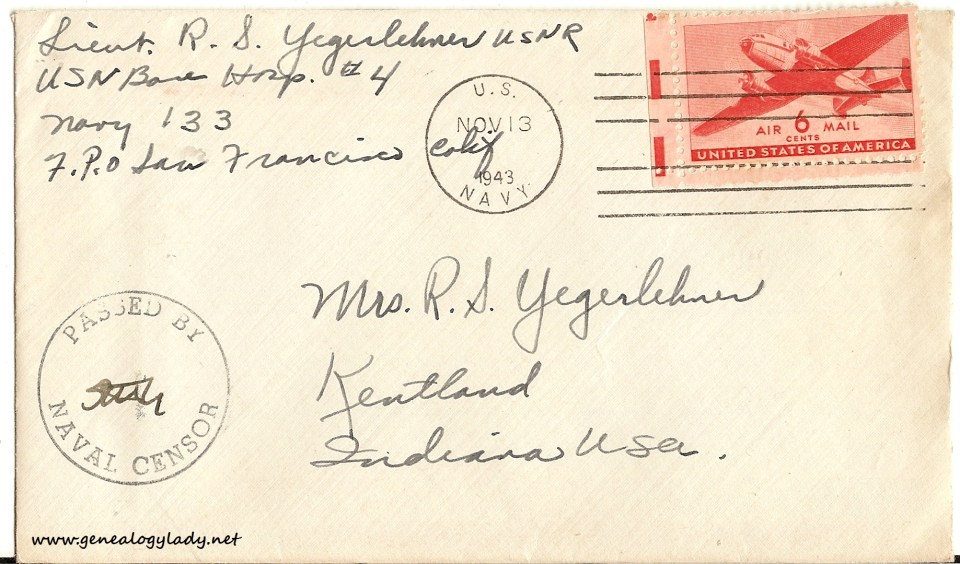 Lieut. R. S. Yegerlehner USNR
USN Base Hosp. #4
Navy 133
F.P.O San Francisco Calif
U.S.
NOV 13
1943
NAVY
AIR 6 MAIL
CENTS
UNITED STATES OF AMERICA
Mrs. R. S. Yegerlehner
Kentland
Indiana USA.
PASSED BY
NAVAL CENSOR
www.genealogylady.net